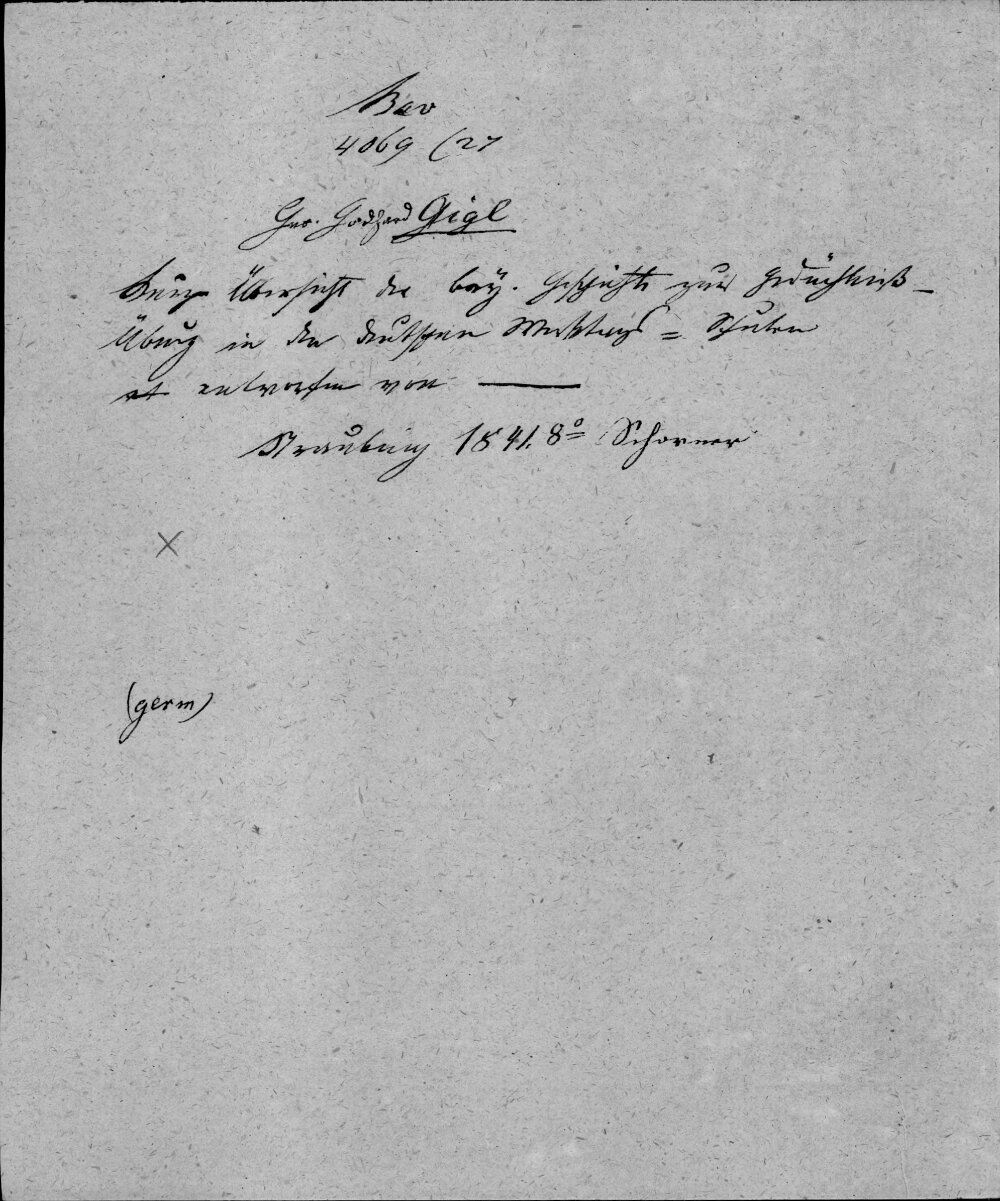 Bav
4069 (27
Gothard Gigl
Kurze Übersicht der bay. Geschichte zur Gedächtniß-
Übung in den deutschen Werktags=Schulen
entworfen von ———
Straubing 1841. 8° Schorner
×
(germ)